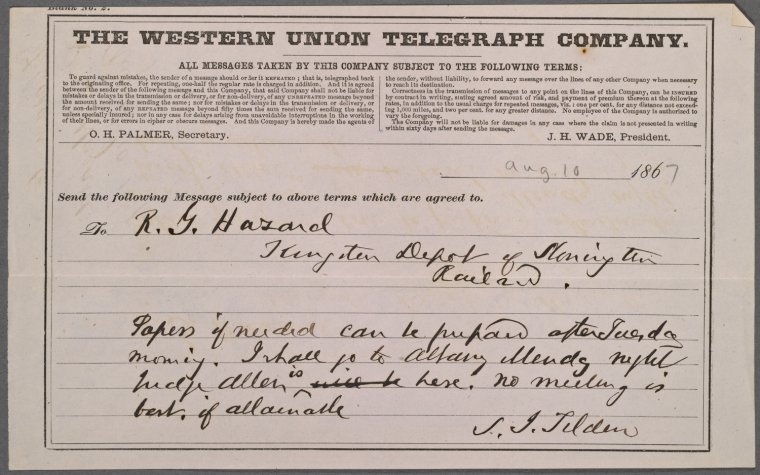 Blank No. 2.
THE WESTERN UNION TELEGRAPH COMPANY.
ALL MESSAGES TAKEN BY THIS COMPANY SUBJECT TO THE FOLLOWING TERMS:
To guard against mistakes, the sender of a message should order it REPEATED; that is, telegraphed back
to the originating office. For repeating, one-half the regular rate is charged in addition. And it is agreed
between the sender of the following message and this Company, that said Company shall not be liable for
mistakes or delays in the transmission or delivery, or for non-delivery, of any UNREPEATED message beyond
the amount received for sending the same; nor for mistakes or delays in the transmission or delivery, or
for non-delivery, of any REPEATED message beyond fifty times the sum received for sending the same,
unless specially insured; nor in any case for delays arising from unavoidable interruptions in the working
of their lines, or for errors in cipher or obscure messages. And this Company is hereby made the agents of
O. H. PALMER, Secretary.
the sender, without liability, to forward any message over the lines of any other Company when necessary
to reach its destination.
Correctness in the transmission of messages to any point on the lines of this Company, can be INSURED
by contract in writing, stating agreed amount of risk, and payment of premium thereon at the following
rates, in addition to the usual charge for repeated messages, viz.: one per cent. for any distance not exceed-
ing 1,000 miles, and two per cent. for any greater distance. No employee of the Company is authorized to
vary the foregoing.
The Company will not be liable for damages in any case where the claim is not presented in writing
within sixty days after sending the message.
J. H. WADE, President.
Aug. 10 1867
Send the following Message subject to above terms which are agreed to.
To R. G. Hazard
Kingston Depot of Stonington
Railrd.
Papers if needed can be prepared after Tuesday
morning. I shall go to Albany Monday night
Judge Allen is here. No meeting is
best. if attainable
S. J. Tilden